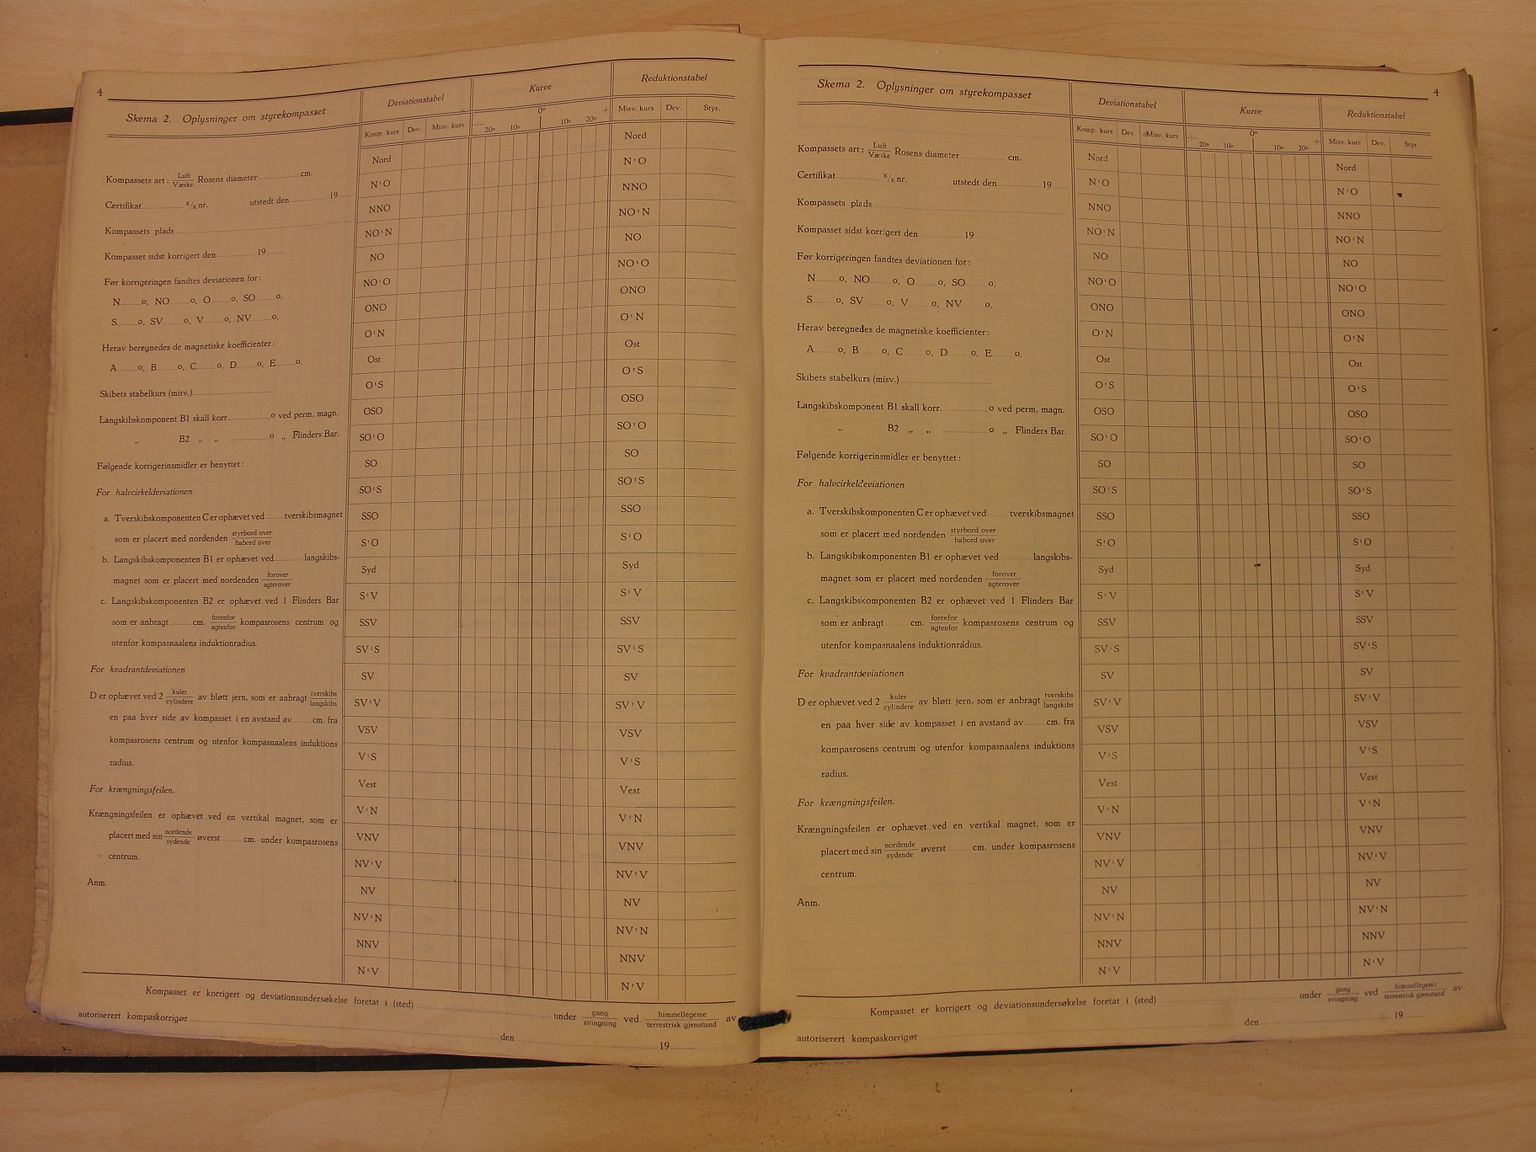 4
Skema 2. Oplysninger om styrekompasset
Kompassets art: Luft/Væske Rosens diameter cm.
Certifikat K/K nr. utstedt den 19
Kompassets plads
Kompasset sidst korrigert den 19
Før korrigeringen fandtes deviationen for:
N o, NO o, O o, SO o.
S o, SV o, V o, NV o.
Herav beregnedes de magnetiske koefficienter:
A o, B o, C o, D o, E o.
Skibets stabelkurs (misv.)
Langskibskomponent B1 skall korr. o ved perm. magn.
„ B2 „ „ o „ Flinders Bar.
Følgende korrigerinsmidler er benyttet:
For halvcirkeldeviationen
a. Tverskibskomponenten C er ophævet ved tverskibsmagnet
som er placert med nordenden styrbord over/babord over
b. Langskibskomponenten B1 er ophævet ved langskibs-
magnet som er placert med nordenden forover/agterover
c. Langskibskomponenten B2 er ophævet ved 1 Flinders Bar
som er anbragt cm. forenfor/agtenfor kompasrosens centrum og
utenfor kompasnaalens induktionsradius.
For kvadrantdeviationen
D er ophævet ved 2 kuler/cylindere av bløtt jern, som er anbragt tverskibs/langskibs
en paa hver side av kompasset i en avstand av cm. fra
kompasrosens centrum og utenfor kompasnaalens induktions
radius.
For krængningsfeilen.
Krængningsfeilen er ophævet ved en vertikal magnet, som er
placert med sin nordende/sydende øverst cm. under kompasrosens
centrum.
Anm.
Deviationstabel
Komp. kurs Dev. Misv. kurs
Nord
N¹O
NNO
NO¹N
NO
NO¹O
ONO
O¹N
Ost
O¹S
OSO
SO¹O
SO
SO¹S
SSO
S¹O
Syd
S¹V
SSV
SV¹S
SV
SV¹V
VSV
V¹S
Vest
V¹N
VNV
NV¹V
NV
NV¹N
NNV
N¹V
Kurve
− 0° +
20° 10° 10° 20°
Reduktionstabel
Misv. kurs Dev. Styr.
Nord
N¹O
NNO
NO¹N
NO
NO¹O
ONO
O¹N
Ost
O¹S
OSO
SO¹O
SO
SO¹S
SSO
S¹O
Syd
S¹V
SSV
SV¹S
SV
SV¹V
VSV
V¹S
Vest
V¹N
VNV
NV¹V
NV
NV¹N
NNV
N¹V
Kompasset er korrigert og deviationsundersøkelse foretat i (sted) under gang/svingning ved himmellegeme/terrestrisk gjenstand av
autorisert kompaskorrigør den 19
4
Skema 2. Oplysninger om styrekompasset
Kompassets art: Luft/Væske Rosens diameter cm.
Certifikat K/K nr. utstedt den 19
Kompassets plads
Kompasset sidst korrigert den 19
Før korrigeringen fandtes deviationen for:
N o, NO o, O o, SO o.
S o, SV o, V o, NV o.
Herav beregnedes de magnetiske koefficienter:
A o, B o, C o, D o, E o.
Skibets stabelkurs (misv.)
Langskibskomponent B1 skall korr. o ved perm. magn.
„ B2 „ „ o „ Flinders Bar.
Følgende korrigerinsmidler er benyttet:
For halvcirkeldeviationen
a. Tverskibskomponenten C er ophævet ved tverskibsmagnet
som er placert med nordenden styrbord over/babord over
b. Langskibskomponenten B1 er ophævet ved langskibs-
magnet som er placert med nordenden forover/agterover
c. Langskibskomponenten B2 er ophævet ved 1 Flinders Bar
som er anbragt cm. forenfor/agtenfor kompasrosens centrum og
utenfor kompasnaalens induktionradius.
For kvadrantdeviationen
D er ophævet ved 2 kuler/cylindere av bløtt jern, som er anbragt tverskibs/langskibs
en paa hver side av kompasset i en avstand av cm. fra
kompasrosens centrum og utenfor kompasnaalens induktions
radius.
For krængningsfeilen.
Krængningsfeilen er ophævet ved en vertikal magnet, som er
placert med sin nordende/sydende øverst cm. under kompasrosens
centrum.
Anm.
Deviationstabel
Komp. kurs Dev. Misv. kurs
Nord
N¹O
NNO
NO¹N
NO
NO¹O
ONO
O¹N
Ost
O¹S
OSO
SO¹O
SO
SO¹S
SSO
S¹O
Syd
S¹V
SSV
SV¹S
SV
SV¹V
VSV
V¹S
Vest
V¹N
VNV
NV¹V
NV
NV¹N
NNV
N¹V
Kurve
− 0° +
20° 10° 10° 20°
Reduktionstabel
Misv. kurs Dev. Styr.
Nord
N¹O
NNO
NO¹N
NO
NO¹O
ONO
O¹N
Ost
O¹S
OSO
SO¹O
SO
SO¹S
SSO
S¹O
Syd
S¹V
SSV
SV¹S
SV
SV¹V
VSV
V¹S
Vest
V¹N
VNV
NV¹V
NV
NV¹N
NNV
N¹V
Kompasset er korrigert og deviationsundersøkelse foretat i (sted) under gang/svingning ved himmellegeme/terrestrisk gjenstand av
autoriserert kompaskorrigør den 19